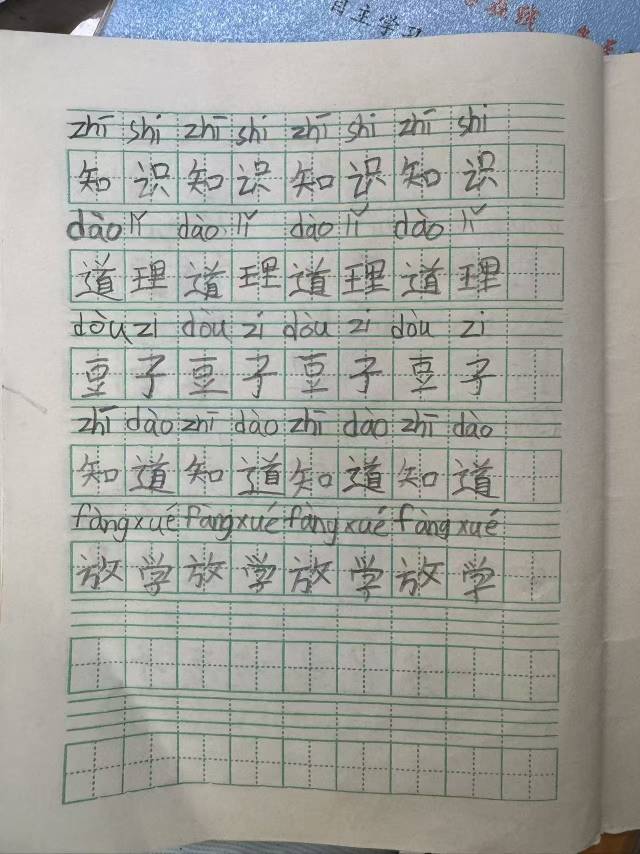 自主学习
zhī shi zhī shi zhī shi zhī shi
知识知识知识知识
dào lǐ dào lǐ dào lǐ dào lǐ
道理道理道理道理
dòu zi dòu zi dòu zi dòu zi
豆子豆子豆子豆子
zhī dào zhī dào zhī dào zhī dào
知道知道知道知道
fàng xué fàng xué fàng xué fàng xué
放学放学放学放学